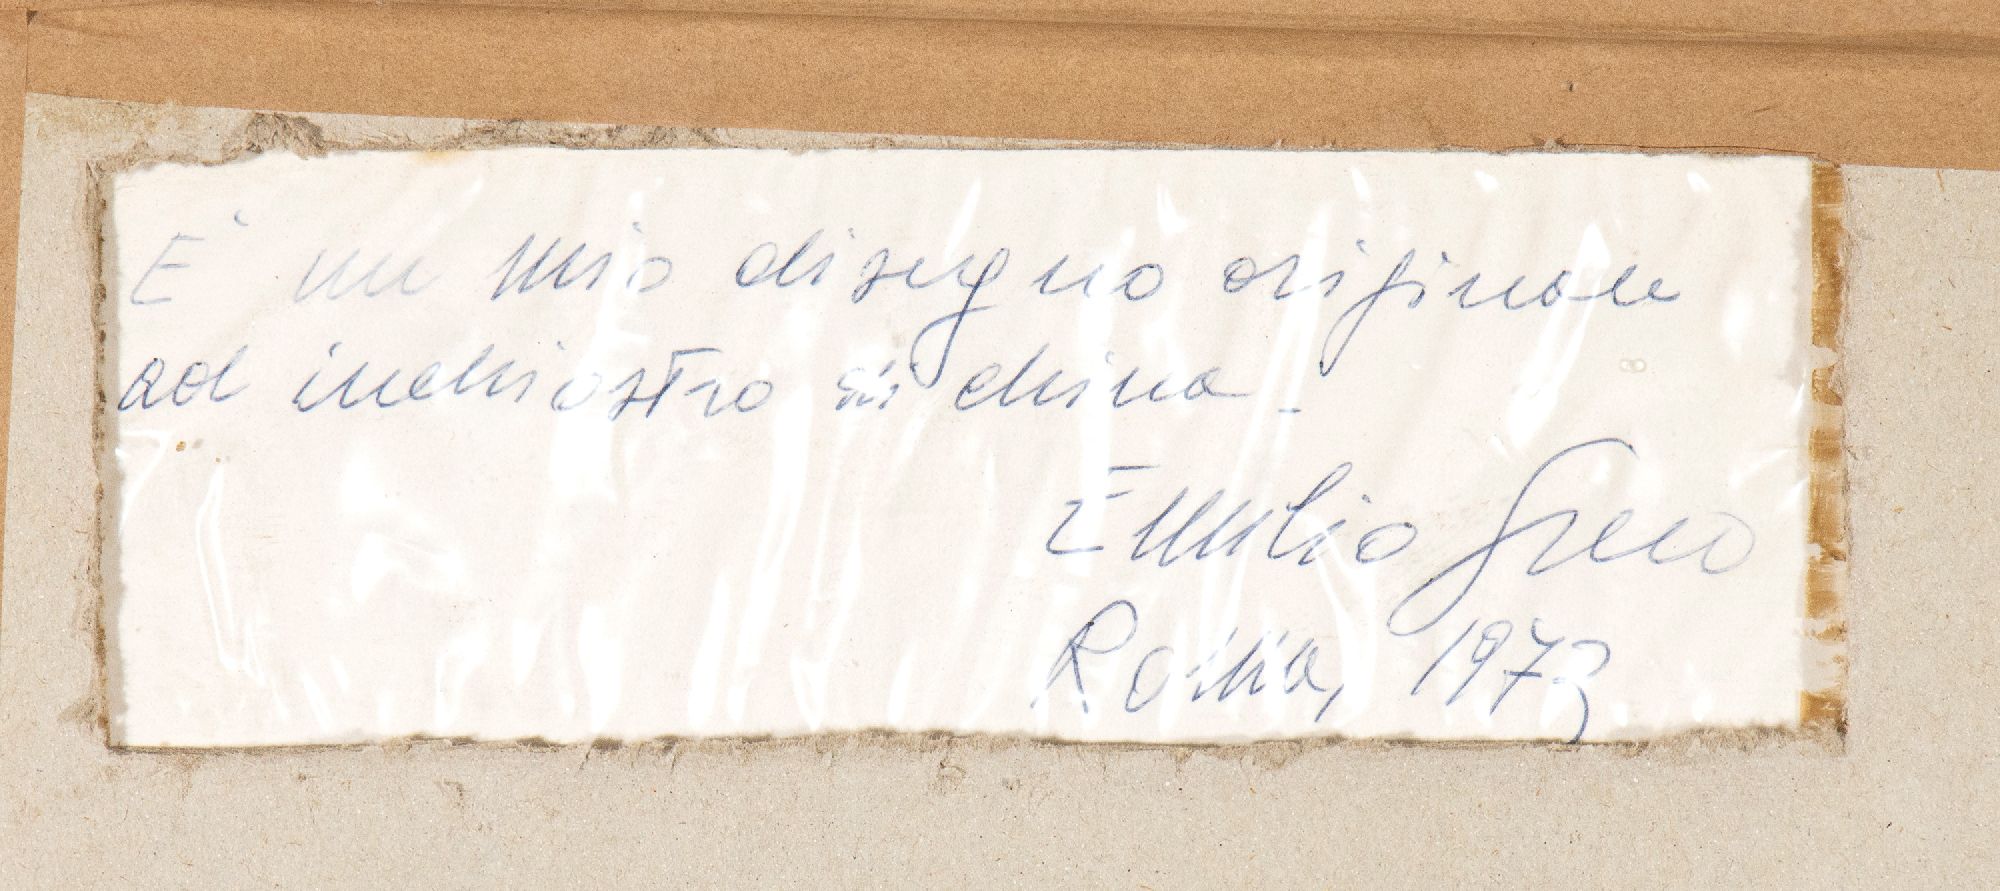 E' un mio disegno originale
ad inchiostro di china.
Emilio Greco
Roma, 1973